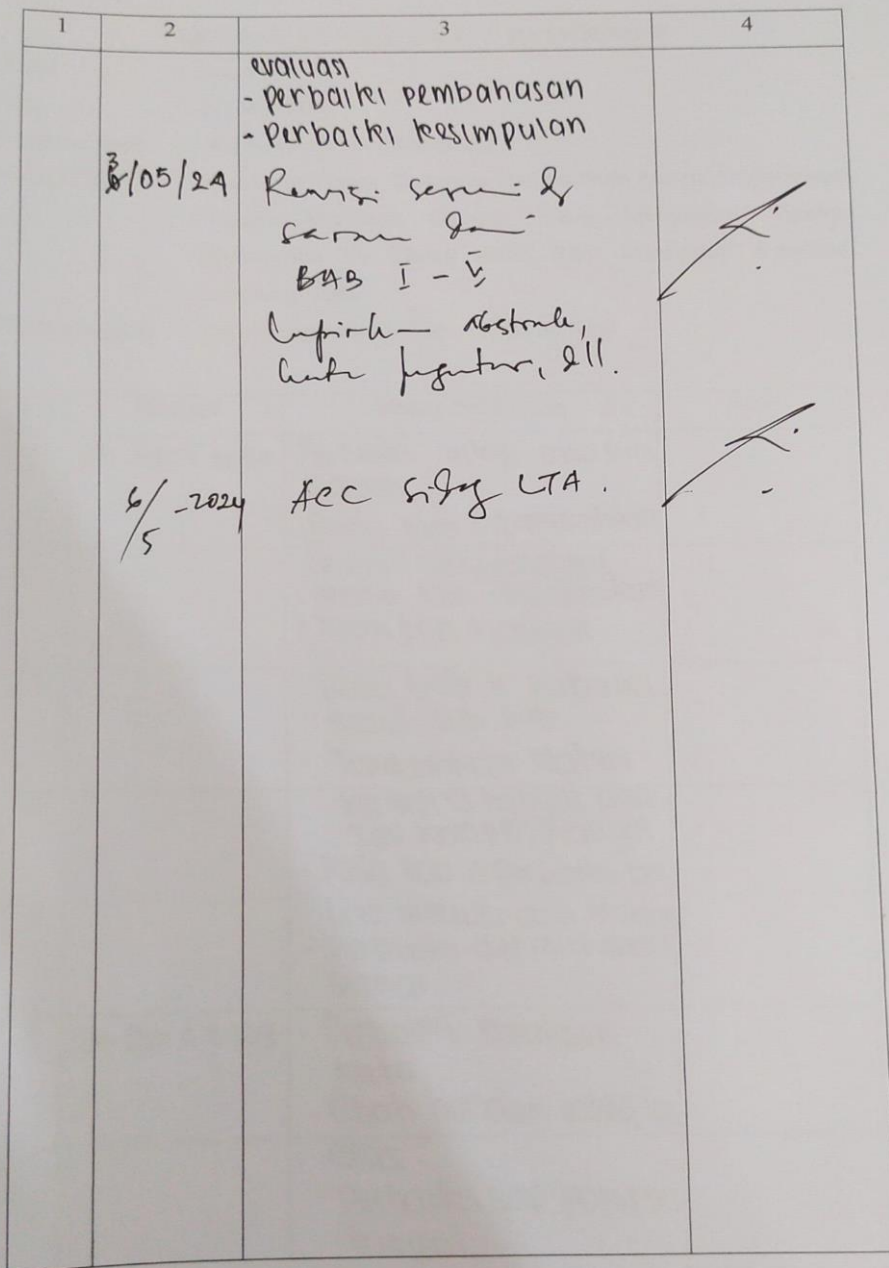 1 2 3 4
evaluasi
- perbaiki pembahasan
- perbaiki kesimpulan
3/05/24 Revisi sesuai dg
saran dari
BAB I - V
Lampirkan abstrak,
kata pengantar, dll.
6/5 -2024 Acc sidang LTA.